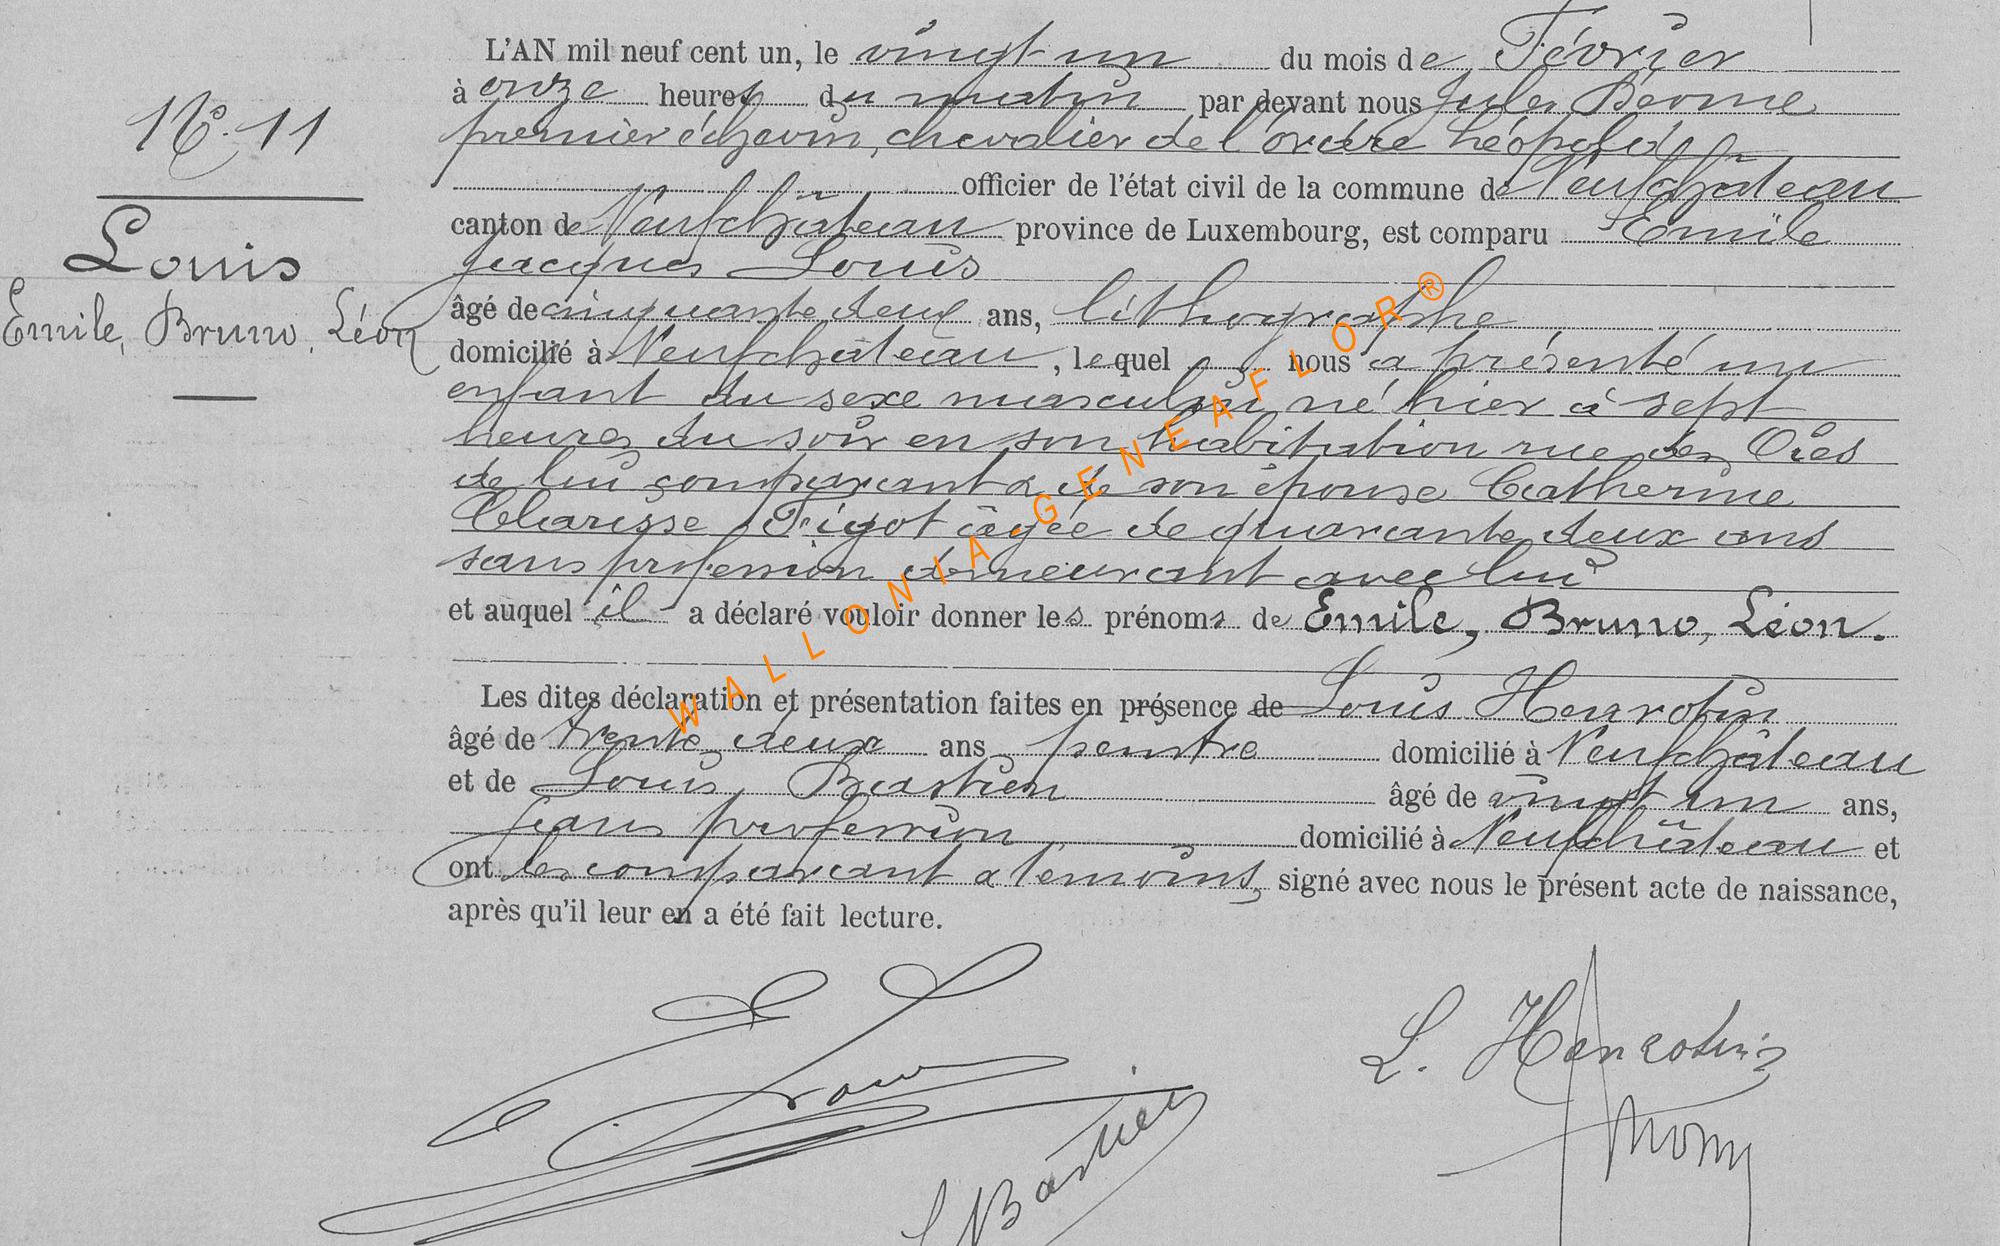 N°. 11
Louis
Emile, Bruno, Léon
L'AN mil neuf cent un, le vingt un du mois de Février
à onze heures du matin par devant nous Jules
premier échevin, chevalier de l'ordre Léopold
officier de l'état civil de la commune de Neufchâteau
canton de Neufchâteau province de Luxembourg, est comparu Emile
Jacques Louis
âgé de cinquante deux ans, lithographe
domicilié à Neufchâteau, lequel nous a présenté un
enfant du sexe masculin né hier à sept
heures du soir en son habitation rue des
de lui comparant & de son épouse Catherine
Clarisse Figot âgée de quarante deux ans
sans profession demeurant avec lui
et auquel il a déclaré vouloir donner les prénoms de Emile, Bruno, Léon.
Les dites déclaration et présentation faites en présence de Louis Henrotin
âgé de trente deux ans peintre domicilié à Neufchâteau
et de Louis Bastien âgé de vingt un ans,
sans profession domicilié à Neufchâteau et
ont les comparant & témoins signé avec nous le présent acte de naissance,
après qu'il leur en a été fait lecture.
WALLONIA GENEAFLOR®
L. Henrotin
L Bastien